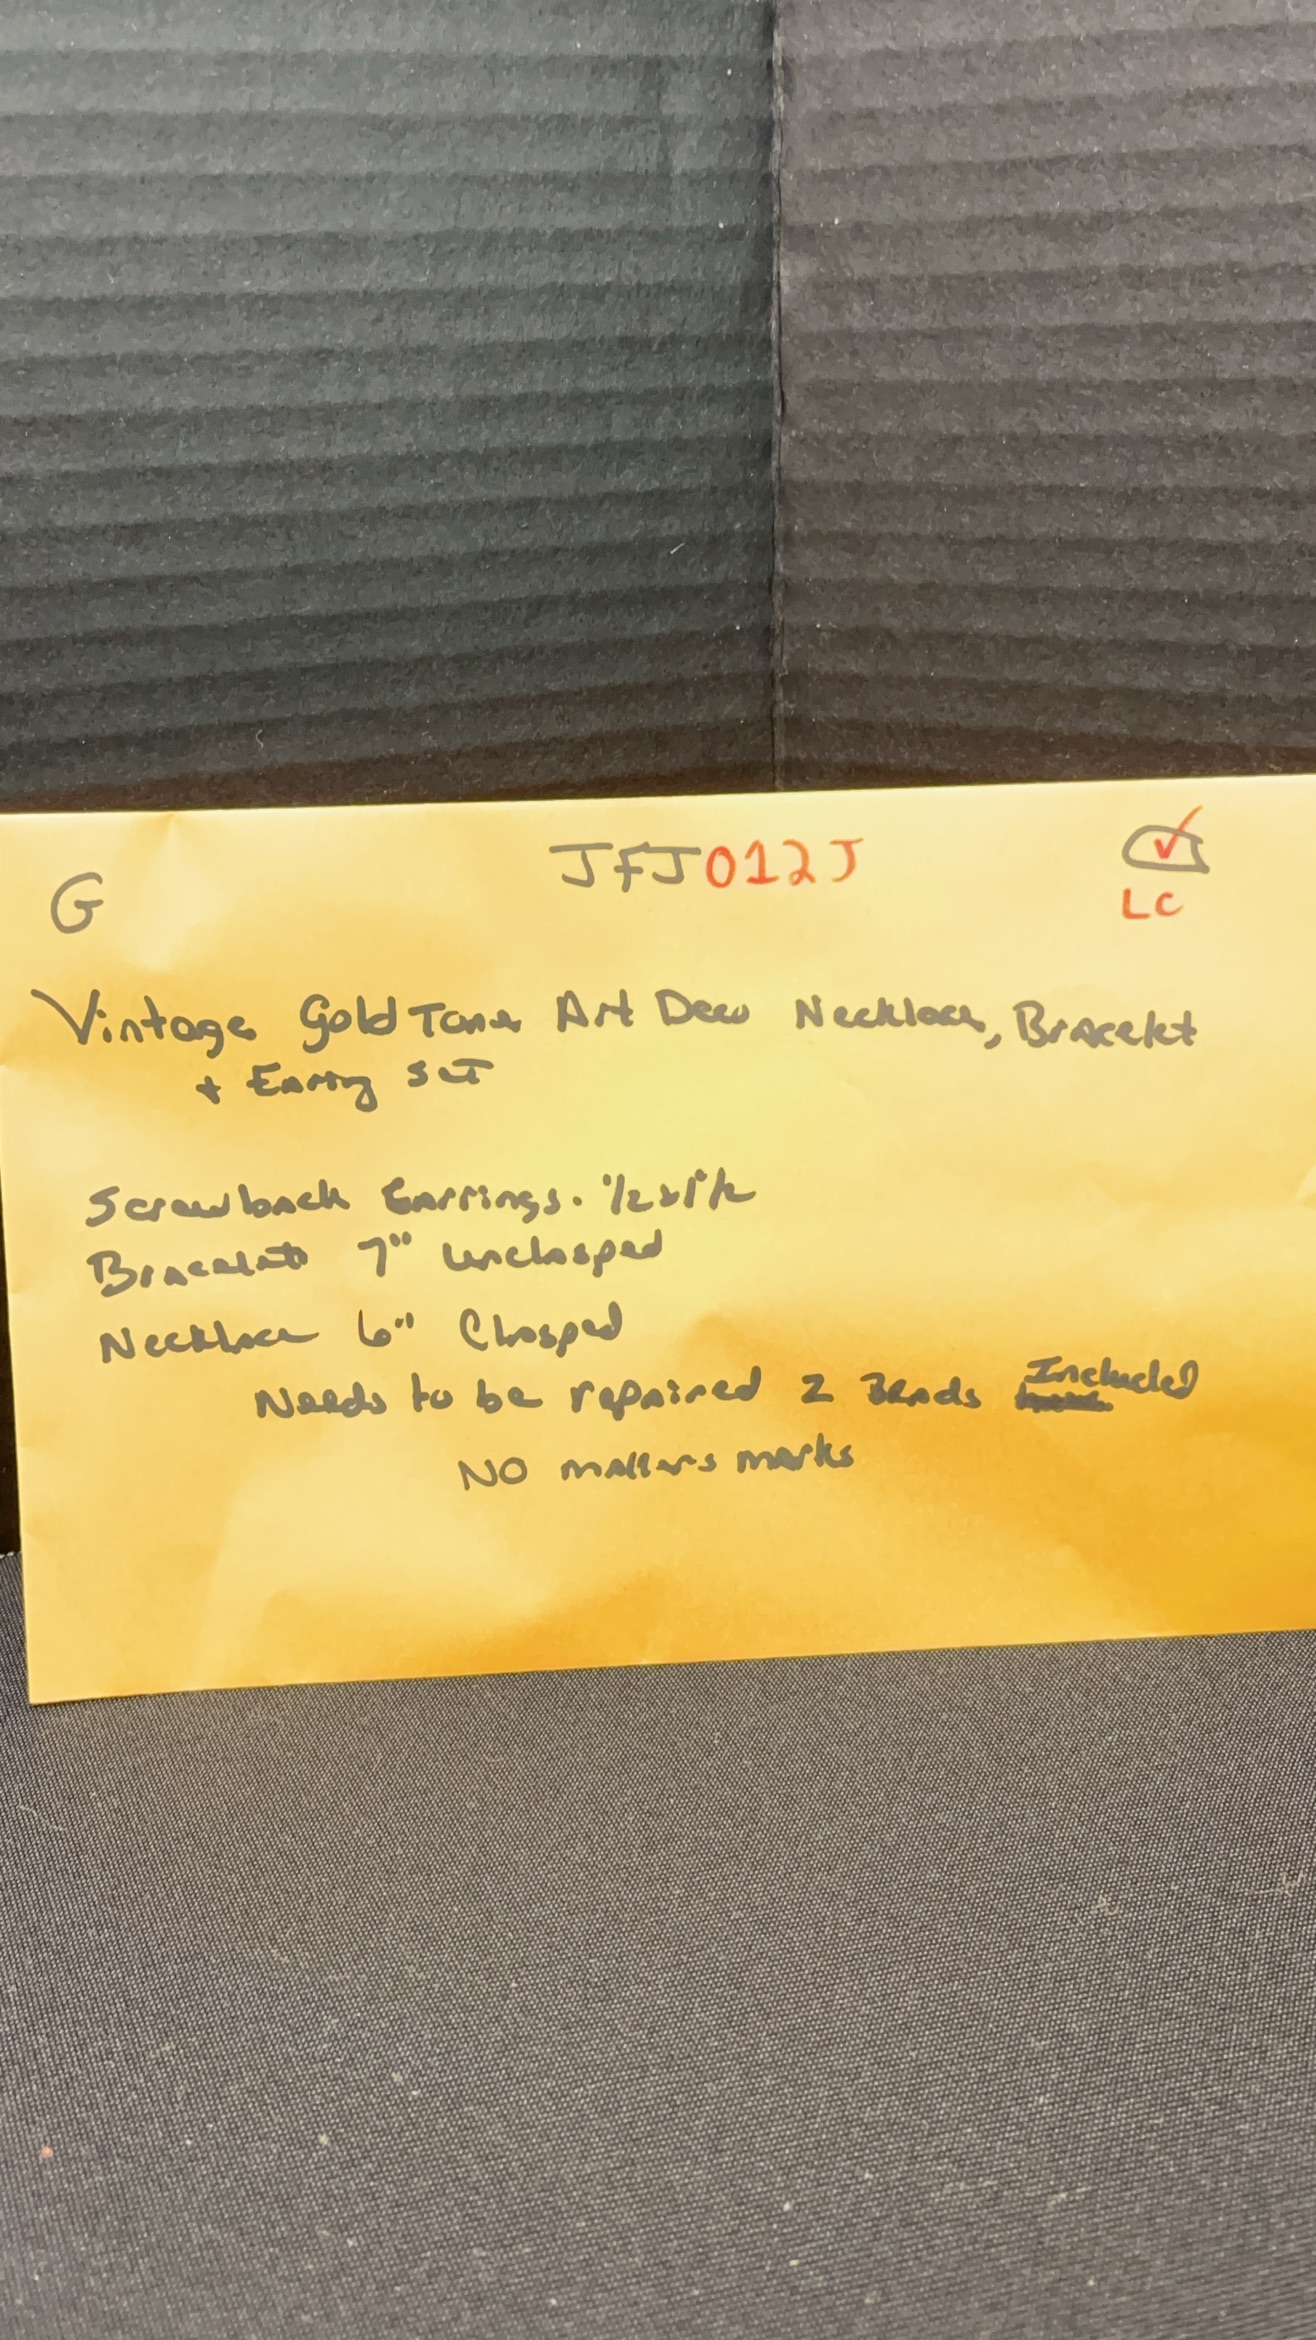 G
JFJ012J
LC
Vintage Gold Tone Art Deco Necklace, Bracelet
+ Earring Set
Screwback Earrings. 1/2 x 1/2
Bracelet 7" unclasped
Necklace 6" Clasped
Needs to be repaired 2 Beads Included
NO makers marks